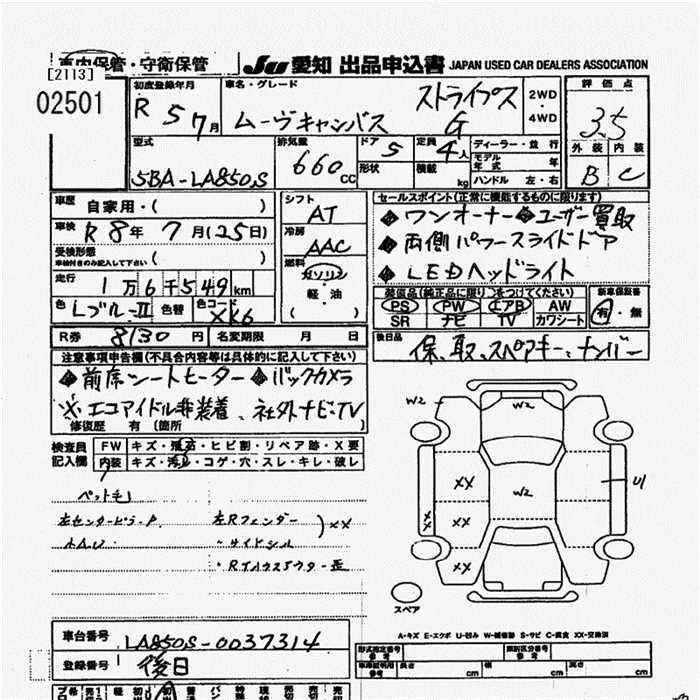 車内保管・守衛保管
JU 愛知 出品申込書 JAPAN USED CAR DEALERS ASSOCIATION
[2113]
02501
初度登録年月 R 5 7月
車名・グレード ムーヴキャンバス ストライプス G
2WD・4WD
評価点 3.5
外装 内装
B C
型式 5BA-LA850S
排気量 660cc
ドア 5
形状
定員 4人
積載 kg
ディーラー・並行
モデル年式 年
ハンドル 左・右
車歴 自家用・( )
車検 R 8年 7月(25日)
受検形態 ( )
車検付きのみ記入して下さい
走行 1万6千549km
色 Lブルー II 色替 色コード XK6
シフト AT
冷房 AAC
燃料 ガソリン・軽油
( )
セールスポイント(正常に機能するものに限ります)
◆ワンオーナー◆ユーザー買取
◆両側パワースライドドア
◆LEDヘッドライト
装備品(純正品に限り○をつけてください)
PS PW エアB AW
SR ナビ TV カワシート
新車保証書
有・無
R券 8130円 名変期限 月 日
後日品 保、取、スペアキー、ナンバー
注意事項申告欄(不具合内容等は具体的に記入して下さい)
◆前席シートヒーター◆バックカメラ
※エコアイドル非装着、社外ナビ・TV
修復歴 有 〔箇所
検査員記入欄
FW キズ・飛石・ヒビ割・リペア跡・X要
内装 キズ・汚れ・コゲ・穴・スレ・キレ・破レ
ペット毛
左センターピラーP
左Rフェンダー
〃サイドシル
)xx
W2
W2
W2
XX
XX
XX
XX
U1
スペア
A-キズ E-エクボ U-凹み W-補修跡 S-サビ C-腐食 XX-交換済
車台番号 LA850S-0037314
登録番号 後日
形式指定番号
参考
類別区分番号
参考
車庫証明用
参考
長さ cm 幅 cm 高さ cm